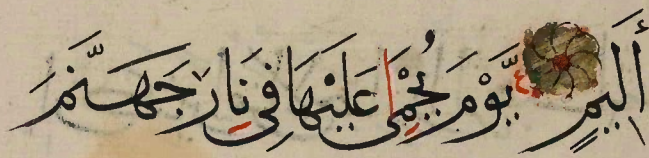 أَلِيمٍ يَّوْمَ يُحْمَى عَلَيْهَا فِي نَارِ جَهَنَّمَ